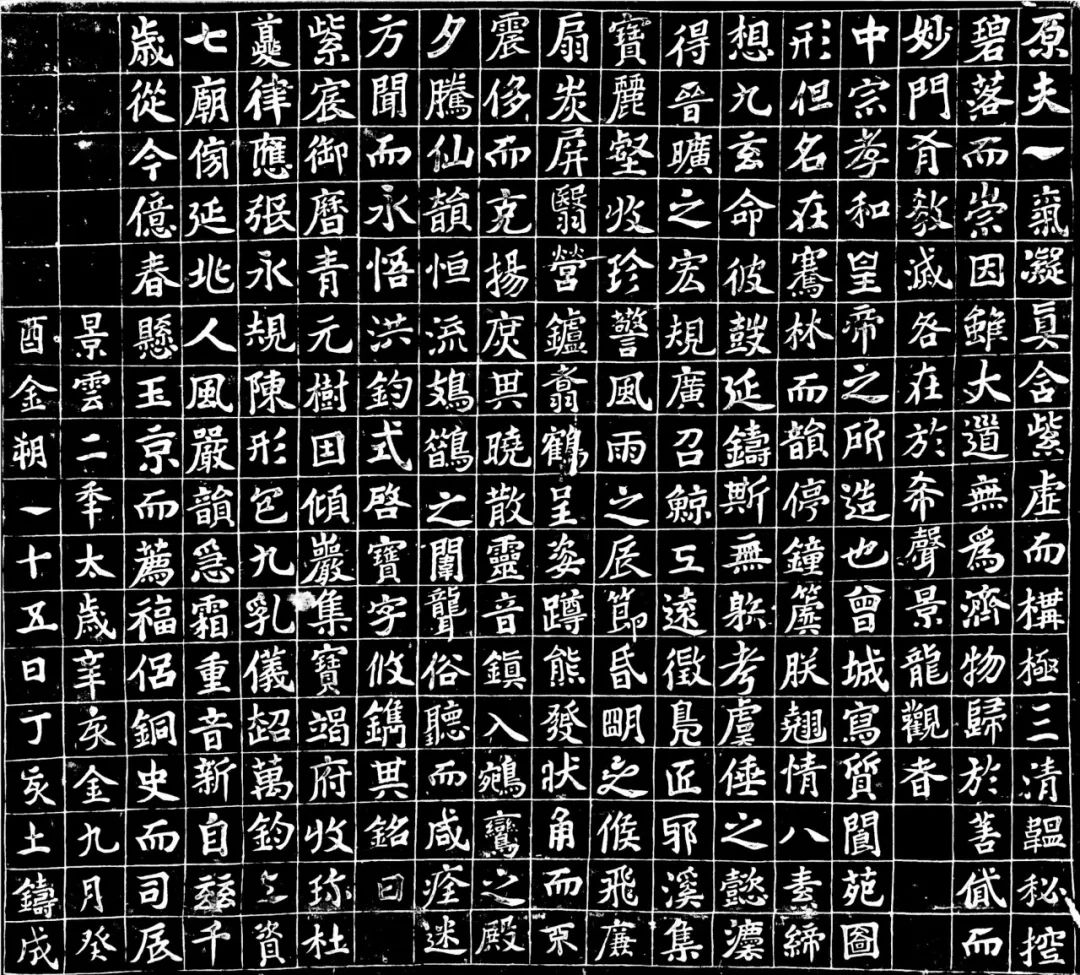 原夫一氣凝真含紫虛而構極三清韞秘控
碧落而崇因雖大道無為濟物歸於善貸而
妙門有教滅咎在於希聲景龍觀者
中宗孝和皇帝之所造也曾城寫質閬苑圖
形但名在騫林而韻停鐘簴朕翹情八素締
想九玄命彼鼓延鑄斯無射考虞倕之懿灋
得晉曠之宏規廣召鯨工遠徵鳧匠耶溪集
寶麗壑收珍警風雨之辰節昏明之候飛廉
扇炭屏翳營鑪翥鶴呈姿蹲熊發狀角而不
震侈而克揚庶其曉散靈音鎮入鵷鸞之殿
夕騰仙韻恒流鳷鵲之闈聾俗聽而咸痊迷
方聞而永悟洪鈞式啓寶字攸鐫其銘曰
紫宸御曆青元樹因傾巖集寶竭府收珍杜
夔律應張永規陳形包九乳儀超萬鈞上資
七廟傍延兆人風嚴韻急霜重音新自茲千
歲從今億春懸玉京而薦福侶銅史而司辰
景雲二年太歲辛亥金九月癸
酉金朔一十五日丁亥土鑄成